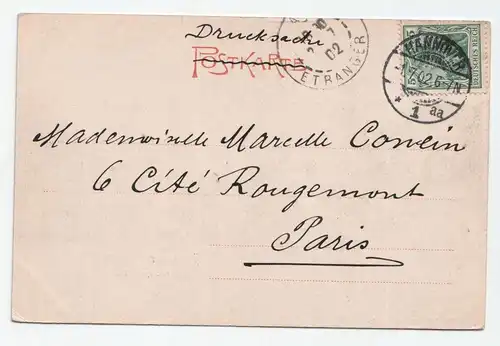 Drucksache
POSTKARTE
ETRANGER
02
MANNHEIM
7.02.6-7N.
1 aa
DEUTSCHES REICH
5
Mademoiselle Marcelle
6 Cité Rougemont
Paris